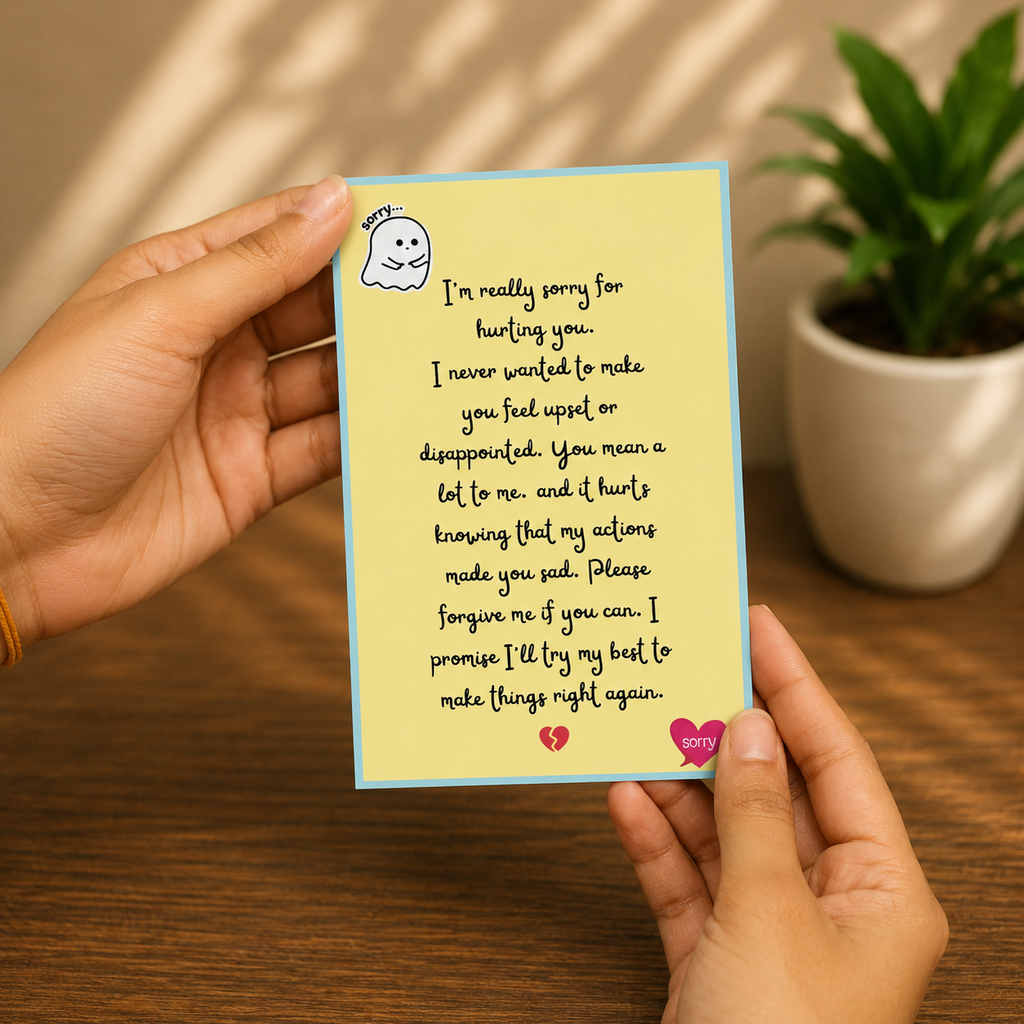 sorry...
I'm really sorry for
hurting you.
I never wanted to make
you feel upset or
disappointed. You mean a
lot to me. and it hurts
knowing that my actions
made you sad. Please
forgive me if you can. I
promise I'll try my best to
make things right again.
sorry